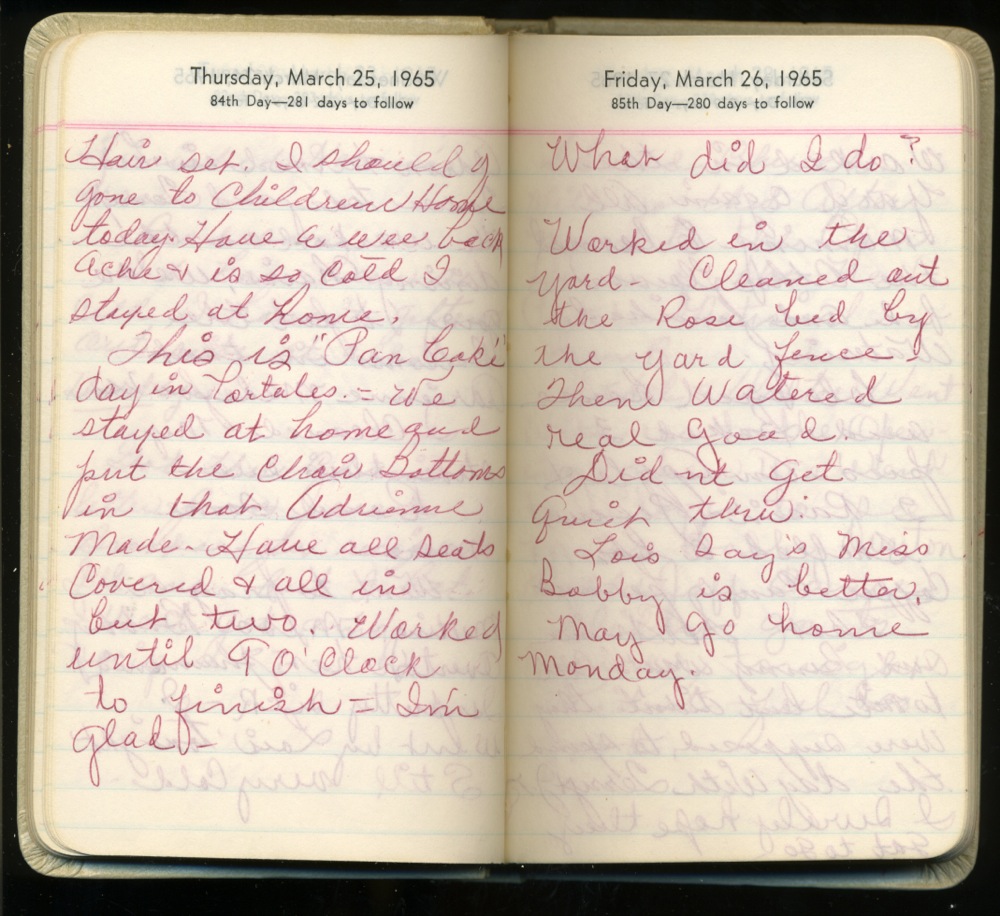 Thursday, March 25, 1965
84th Day—281 days to follow
Hair set. I should
gone to Children Home
today. Have a wee back
ache & is so cold I
stayed at home.
This is "Pan Cake"
day in Portales. = We
stayed at home and
put the Chair Bottoms
in that Adrienne
Made - Have all seats
Covered & all in
but two. Worked
until 9 O'Clock
to finish = I'm
glad -
Friday, March 26, 1965
85th Day—280 days to follow
What did I do?
Worked in the
yard - Cleaned out
the Rose bed by
the yard fence -
Then Watered
real good.
Didnt Get
quiet thru.
Lois Say's Miss
Bobby is better.
May go home
Monday.